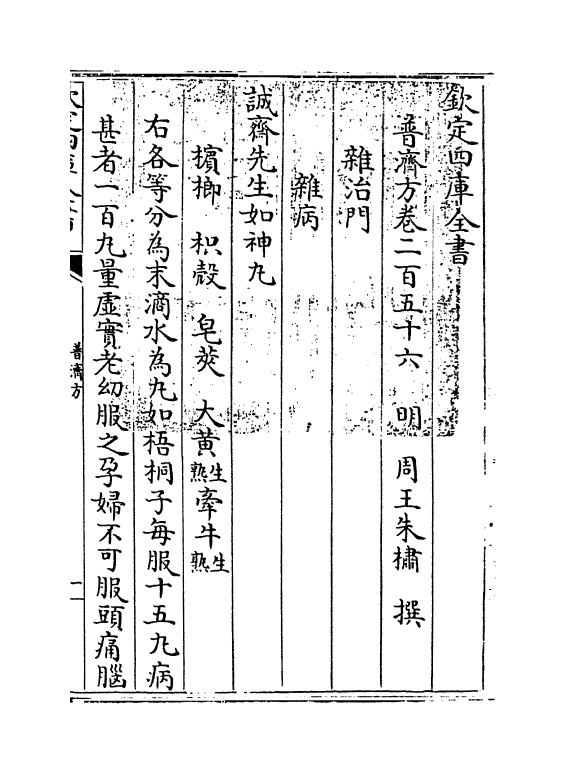 欽定四庫全書
普濟方卷二百五十六　明　周王朱橚　撰
雜治門
雜病
誠齋先生如神丸
檳榔　枳殼　皂莢　大黃生熟牽牛生熟
右各等分為末滴水為丸如梧桐子每服十五丸病
甚者一百丸量虛實老幼服之孕婦不可服頭痛腦
普濟方
一